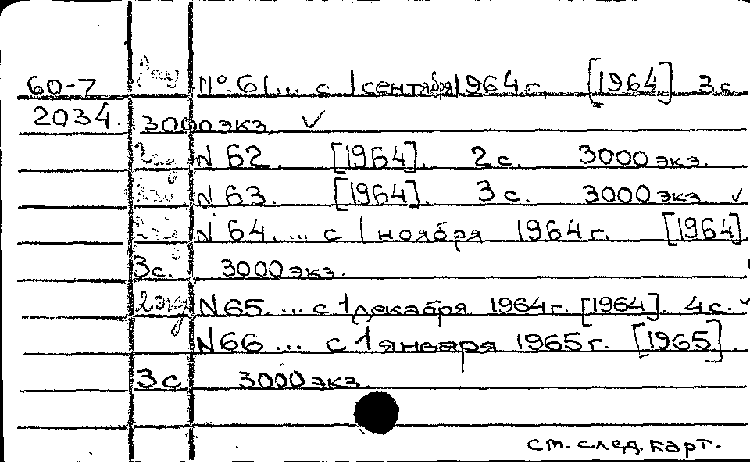 60-7 2экз №61... с 1 сентября 1964 г. [1964] 3 с.
2034. 3000 экз. ✓
N 62. [1964]. 2 с. 3000 экз.
N 63. [1964]. 3 с. 3000 экз. ✓
N 64. ... с 1 ноября 1964 г. [1964].
3 с. 3000 экз.
2экз N 65. ... с 1 декабря 1964 г. [1964]. 4 с. ✓
N 66 ... с 1 января 1965 г. [1965].
3 с 3000 экз.
см. след. карт.